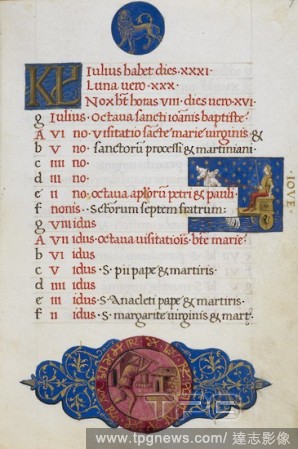 KL Iulius habet dies · XXXI
Luna vero · XXX ·
Nox hēt horas VIII · dies vero · XVI ·
g Iulius · Octava sancti ioānis baptiste
A VI no · Visitatio sacte marie virginis &
b V no · sanctorū processi & martiniani
c IIII no ·
d III no ·
e II no · octava aplorū petri & pauli ·
f nonis · Sctorum septem fratrum ·
g VIII idus
A VII idus · octava visitatiois · bte marie
b VI idus
c V idus · S · pii pape & martiris ·
d IIII idus
e III idus · S · Anacleti pape & martiris ·
f II idus · S · margarite virginis & mart ·
IOVE
TPG
www.tpgnews.com / 達志影像